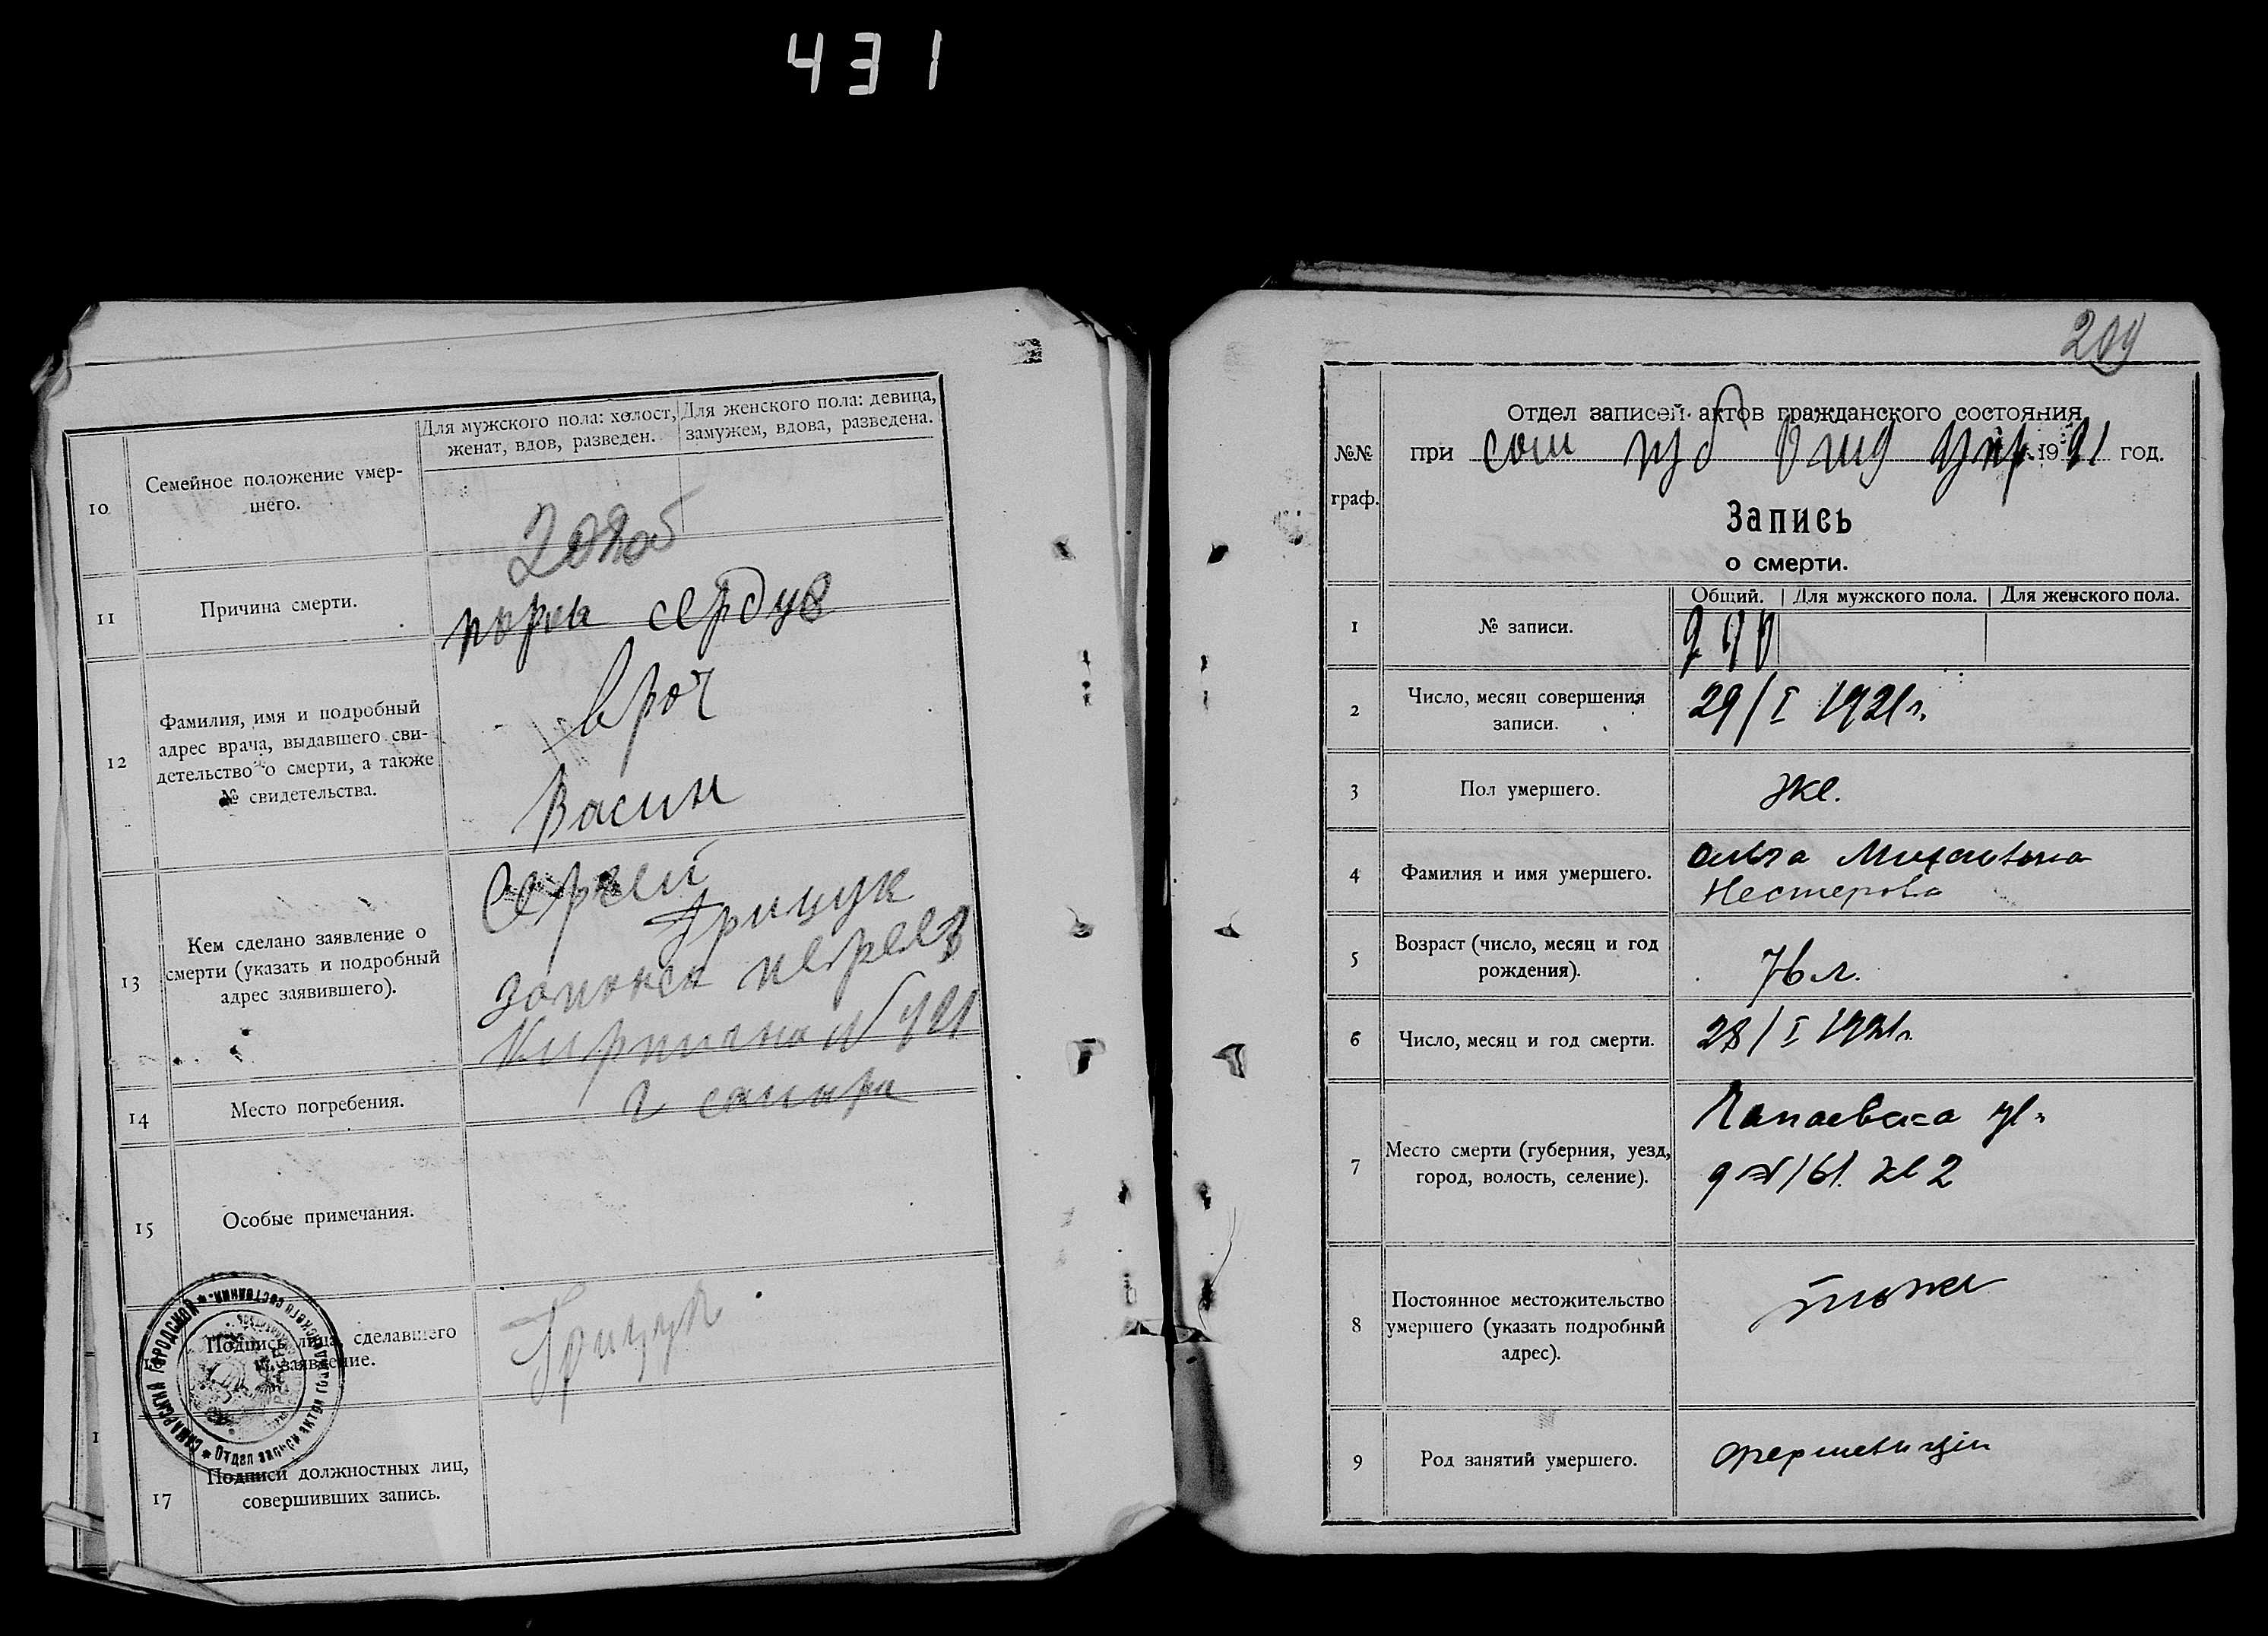 431
10
Семейное положение умер-
шего.
Для мужского пола: холост,
женат, вдов, разведен.
Для женского пола: девица,
замужем, вдова, разведена.
11
Причина смерти.
порок сердца
12
Фамилия, имя и подробный
адрес врача, выдавшего сви-
детельство о смерти, а также
№ свидетельства.
врач
Васин
13
Кем сделано заявление о
смерти (указать и подробный
адрес заявившего).
Сергей
Грицук
14
Место погребения.
г самара
15
Особые примечания.
Подпись лица, сделавшего
заявление.
Грицук
17
Подписи должностных лиц,
совершивших запись.
САМАРСКИЙ ГОРОДСКОЙ * Отдел записи актов гражданского состояния. *
209
№№
граф.
Отдел записей актов гражданского состояния
при сам губ отд упр 1921 год.
Запись
о смерти.
Общий. Для мужского пола. Для женского пола.
1
№ записи.
2
Число, месяц совершения
записи.
29/I 1921г.
3
Пол умершего.
же.
4
Фамилия и имя умершего.
Ольга Михайловна
Нестерова
5
Возраст (число, месяц и год
рождения).
76 л.
6
Число, месяц и год смерти.
28/I 1921г.
7
Место смерти (губерния, уезд,
город, волость, селение).
ул.
д № 161. кв 2
8
Постоянное местожительство
умершего (указать подробный
адрес).
тоже
9
Род занятий умершего.